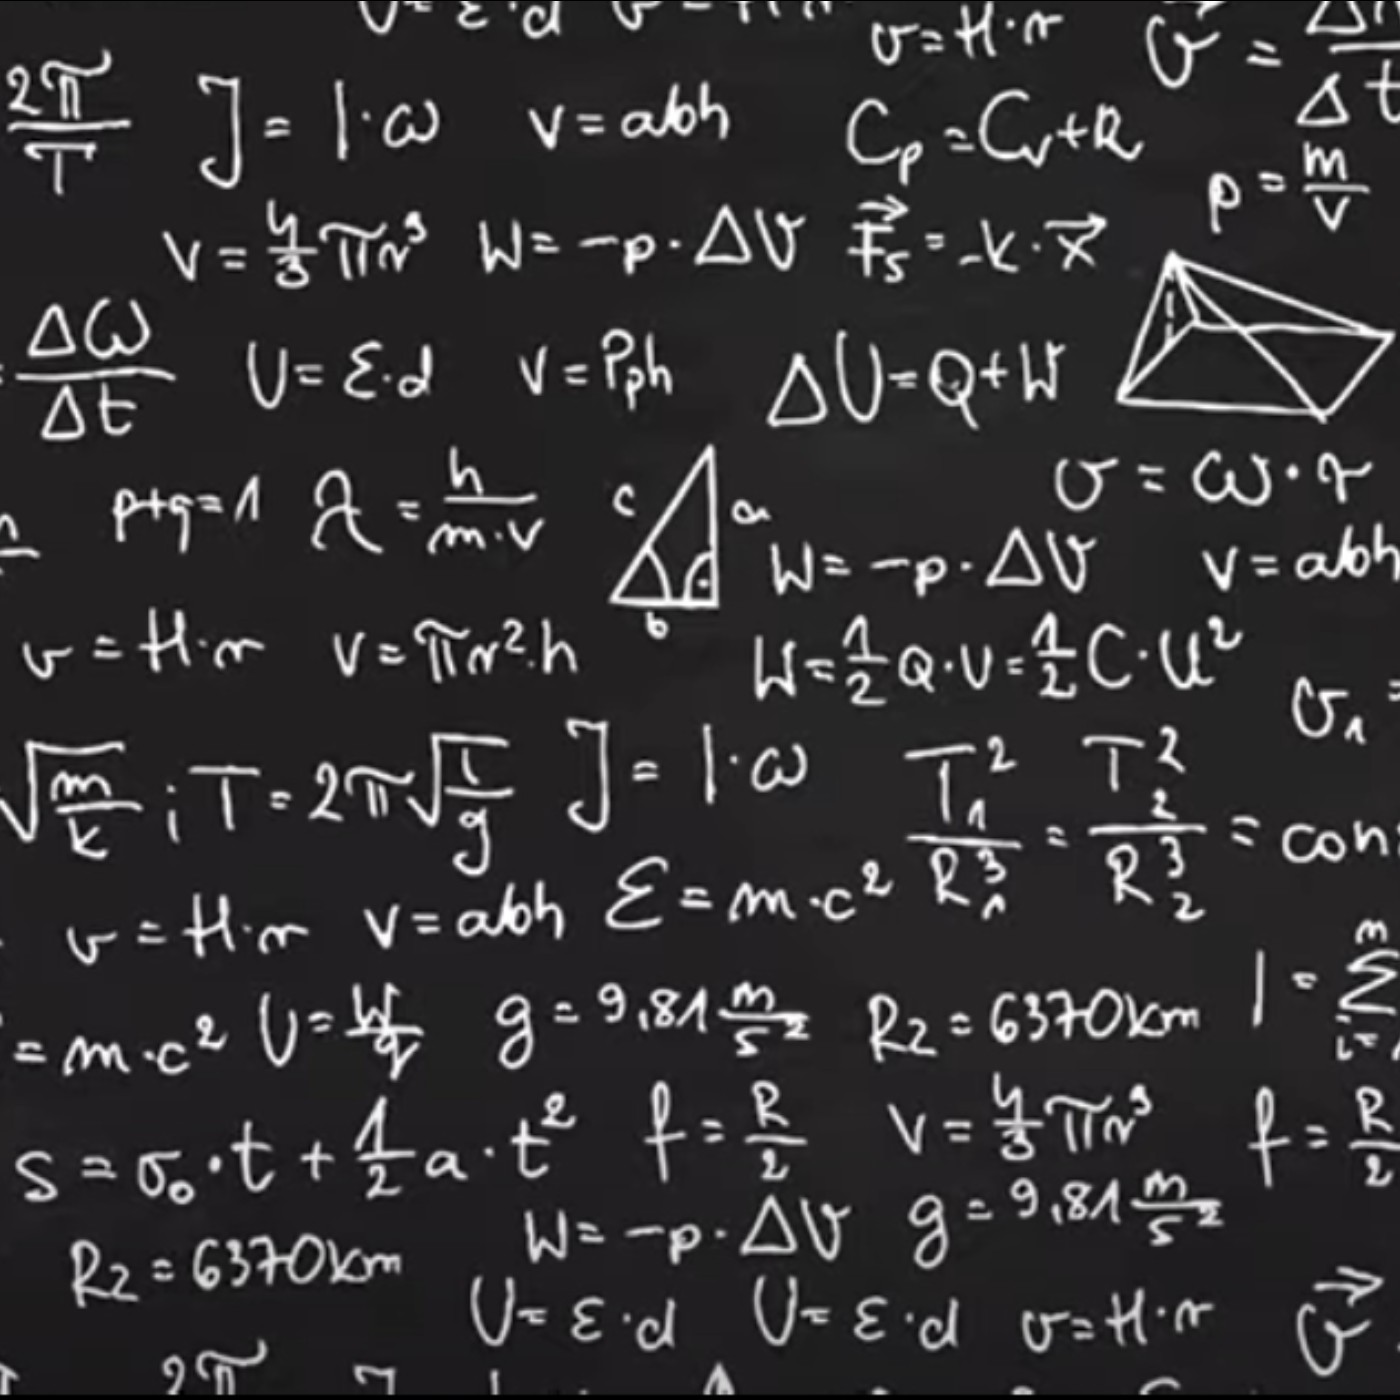 U=ε·d
υ=H·r
2π/T J=I·ω V=abh Cp=Cv+R Δt
ρ=m/V
V=4/3πr³ W=-p·ΔV F⃗s=-k·x⃗
Δω/Δt U=ε·d V=Pph ΔU=Q+W
p+q=1 λ=h/m·v c a b υ=ω·r
W=-p·ΔV V=abh
υ=H·r V=πr²·h W=1/2Q·U=1/2C·U²
υ₁=
√m/k ; T=2π√l/g J=I·ω T₁²/R₁³=T₂²/R₂³=con
υ=H·r V=abh E=m·c²
=m·c² U=W/q g=9,81m/s² Rz=6370km I=Σ
s=υ₀·t+1/2a·t² f=R/2 V=4/3πr³ f=R/2
Rz=6370km W=-p·ΔV g=9,81m/s²
U=ε·d U=ε·d υ=H·r υ⃗
2π